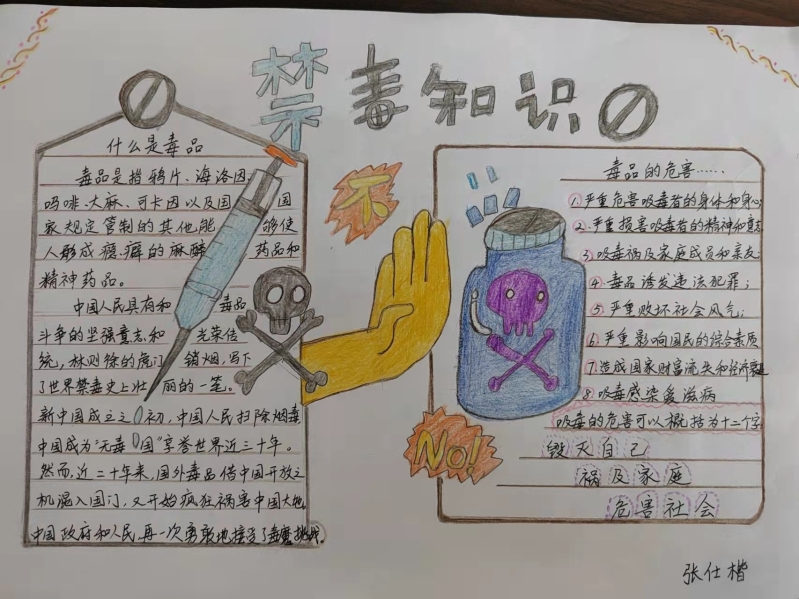 禁毒知识
什么是毒品
毒品是指鸦片、海洛因
吗啡、大麻、可卡因以及国 国
家规定管制的其他能 够使
人形成瘾癖的麻醉 药品和
精神药品。
中国人民具有和 毒品
斗争的坚强意志和 光荣传
统，林则徐的虎门 销烟，写下
了世界禁毒史上壮 丽的一笔。
新中国成立之初，中国人民扫除烟毒
中国成为“无毒国”享誉世界近三十年。
然而，近二十年来，国外毒品借中国开放之
机混入国门，又开始疯狂祸害中国大地，
中国政府和人民再一次勇敢地接受了毒魔挑战。
不
No!
毒品的危害……
1.严重危害吸毒者的身体和身心
2.严重损害吸毒者的精神和意志
3.吸毒祸及家庭成员和亲友
4.毒品诱发违法犯罪；
5.严重败坏社会风气；
6.严重影响国民的综合素质
7.造成国家财富流失和经济
8.吸毒感染爱滋病
吸毒的危害可以概括为十二个字
毁灭自己
祸及家庭
危害社会
张仕楷